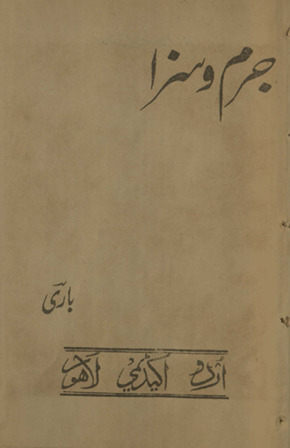 جرم و سزا
باری
اُردو اکیڈمی لاہور